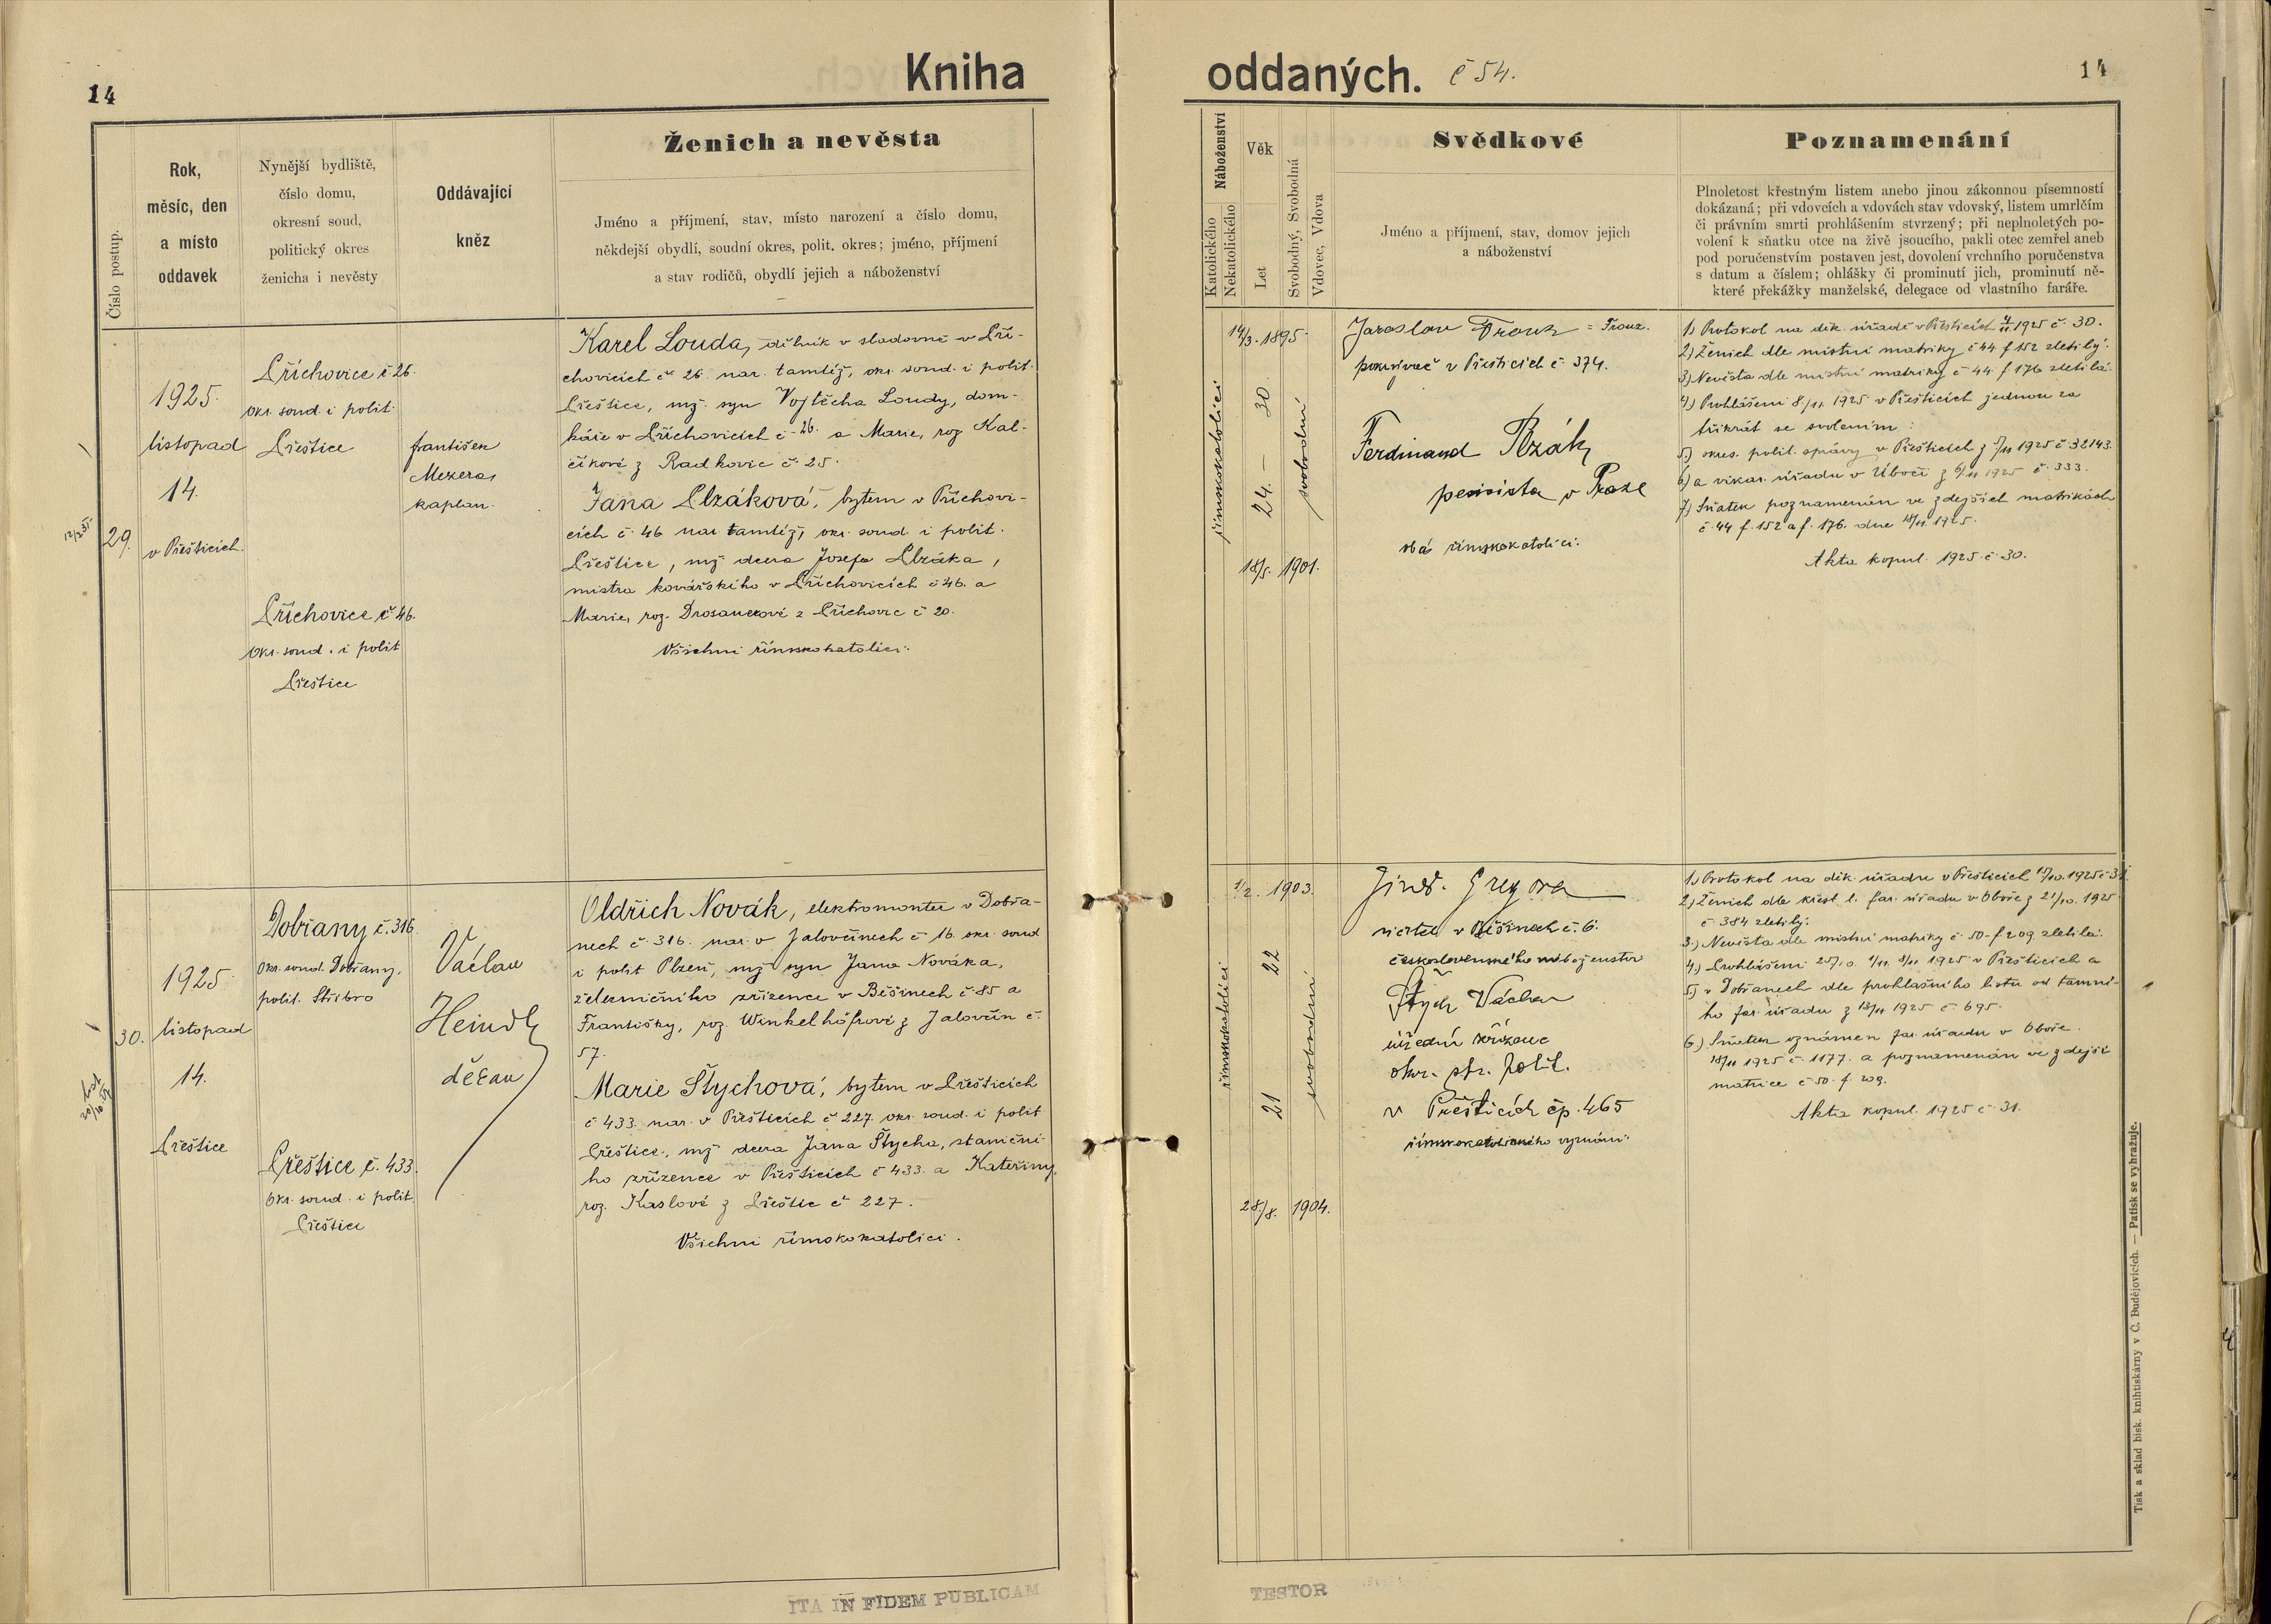 14
Kniha
Číslo postup.
Rok,
měsíc, den
a místo
oddavek
Nynější bydliště,
číslo domu,
okresní soud,
politický okres
ženicha i nevěsty
Oddávající
kněz
Ženich a nevěsta
Jméno a příjmení, stav, místo narození a číslo domu,
někdejší obydlí, soudní okres, polit. okres; jméno, příjmení
a stav rodičů, obydlí jejich a náboženství
29.
1925.
listopad
14.
v Přešticích.
Příchovice č 26.
okr. soud. i polit.
Přeštice
Příchovice č 46.
Okr. soud. i polit
Přeštice
František
Mezera,
kaplan.
Karel Louda, dělník v sladovně v Pří-
chovicích č 26. nar. tamtéž, okr. soud. i polit.
Přeštice, mž. syn Vojtěcha Loudy, dom-
káře v Příchovicích č 26. a Marie, roz Kal-
číkové z Radkovic č. 25.
Jana Plzáková, bytem v Příchovi-
cích č. 46 nar. tamtéž, okr. soud. i polit.
Přeštice, mž dcera Josefa Plzáka,
mistra kovářského v Příchovicích č 46. a
Marie, roz. z Příchovic č 20.
Všichni římskokatolíci.
30.
1925.
listopad
14.
Přeštice
Dobřany č. 316.
Okr. soud. Dobřany,
polit. Stříbro
Přeštice č. 433.
Okr. soud. i polit.
Přeštice
Václav
Heindl
děkan
Oldřich Novák, elektromonter v Dobřa-
nech č 316. nar. v Jalovčinech č 16. okr. soud
i polit Plzeň, mž syn Jana Nováka,
železničního zřízence v Běšinech č 85 a
Františky, roz. Winkelhöfrové z Jalovčin č.
57.
Marie Štychová, bytem v Přešticích
č 433. nar. v Přešticích č 227. okr. soud. i polit
Přeštice, mž dcera Jana Štycha, staniční-
ho zřízence v Přešticích č 433. a Kateřiny,
roz. Kaslové z Přeštic č 227.
Všichni římskokatolíci.
ITA IN FIDEM PUBLICAM
oddaných. č 54.
14
Náboženství
Katolického
Nekatolického
Věk
Let
Svobodný, Svobodná
Vdovec, Vdova
Svědkové
Jméno a příjmení, stav, domov jejich
a náboženství
Poznamenání
Plnoletost křestným listem anebo jinou zákonnou písemností
dokázaná; při vdovcích a vdovách stav vdovský, listem umrlčím
či právním smrti prohlášením stvrzený; při neplnoletých po-
volení k sňatku otce na živě jsoucího, pakli otec zemřel aneb
pod poručenstvím postaven jest, dovolení vrchního poručenstva
s datum a číslem; ohlášky či prominutí jich, prominutí ně-
které překážky manželské, delegace od vlastního faráře.
14/3. 1895.
římskokatolíci
24. — 30.
svobodní
18/5. 1901.
Jaroslav Trouz = Trouz.
pokrývač v Přešticích č. 374.
Ferdinand Plzák
pensista v Praze
oba římskokatolíci.
1) Protokol na děk. úřadě v Přešticích 4/11 1925 č. 30.
2) Ženich dle místní matriky č 44 f 152 zletilý.
3) Nevěsta dle místní matriky č 44 f 176 zletilá.
4) Prohlášeni 8./11. 1925 v Přešticích jednou za
třikrát se svolením:
5) okres. polit. správy v Přešticích z 5/11 1925 č 32143.
6) a vikar. úřadu v Úboči z 6/11 1925 č. 333.
7) Sňatek poznamenán ve zdejších matrikách
č. 44 f. 152 a f. 176. dne 18/11 1925.
Akta kopul. 1925 č. 30.
1/2. 1903.
římskokatolíci
21 22
svobodní
28/8. 1904.
Jindř. Gregora
v Běšinech č. 6.
československého náboženství
Štych Václav
úřední zřízenec
okr. spr. polit.
v Přešticích čp. 465
římskokatolického vyznání.
1) Protokol na děk. úřadu v Přešticích 15/10. 1925 č 31.
2) Ženich dle křest l. far. úřadu v Oboře z 21/10. 1925
č 384 zletilý.
3.) Nevěsta dle místní matriky č. 50-f 209 zletilá.
4.) Prohlášeni 25/10. 1/11. 8/11. 1925 v Přešticích a
5) v Dobřanech dle prohlašního listu od tamní-
ho far. úřadu z 13/11 1925 č 695.
6) Sňatek oznámen far. úřadu v Oboře
18/11 1925 č. 1177. a poznamenán ve zdejší
matrice č 50. f. 209.
Akta kopul. 1925 č. 31.
TESTOR
Tisk a sklad bisk. knihtiskárny v Č. Budějovicích. — Patisk se vyhražuje.